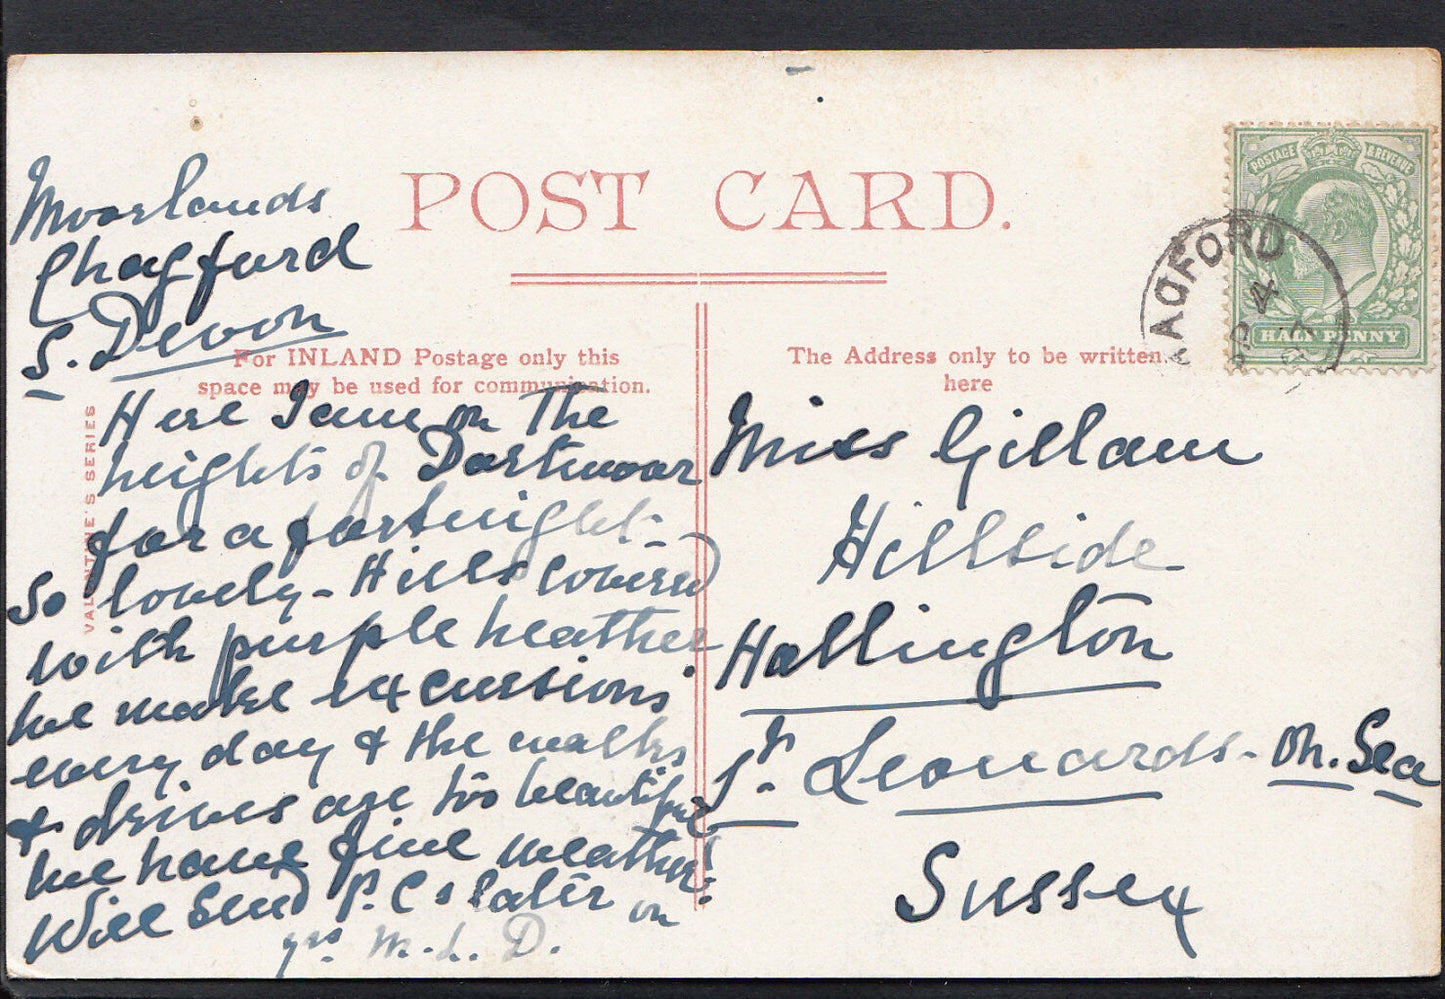 POST CARD.
POSTAGE & REVENUE
HALF PENNY
AGFORD
4
For INLAND Postage only this
space may be used for communication.
The Address only to be written
here
VALENTINE'S SERIES
Moorlands
Chagford
S. Devon
Here I am on the
heights of Dartmoor
for a fortnight -
So lovely - Hills covered
with purple heather
we make excursions
every day & the walks
& drives are too beautiful
we have fine weather!
Will send P. Cs later on
yrs M. L. D.
Miss Gillam
Hillside
Hollington
St. Leonards - on. Sea
Sussex